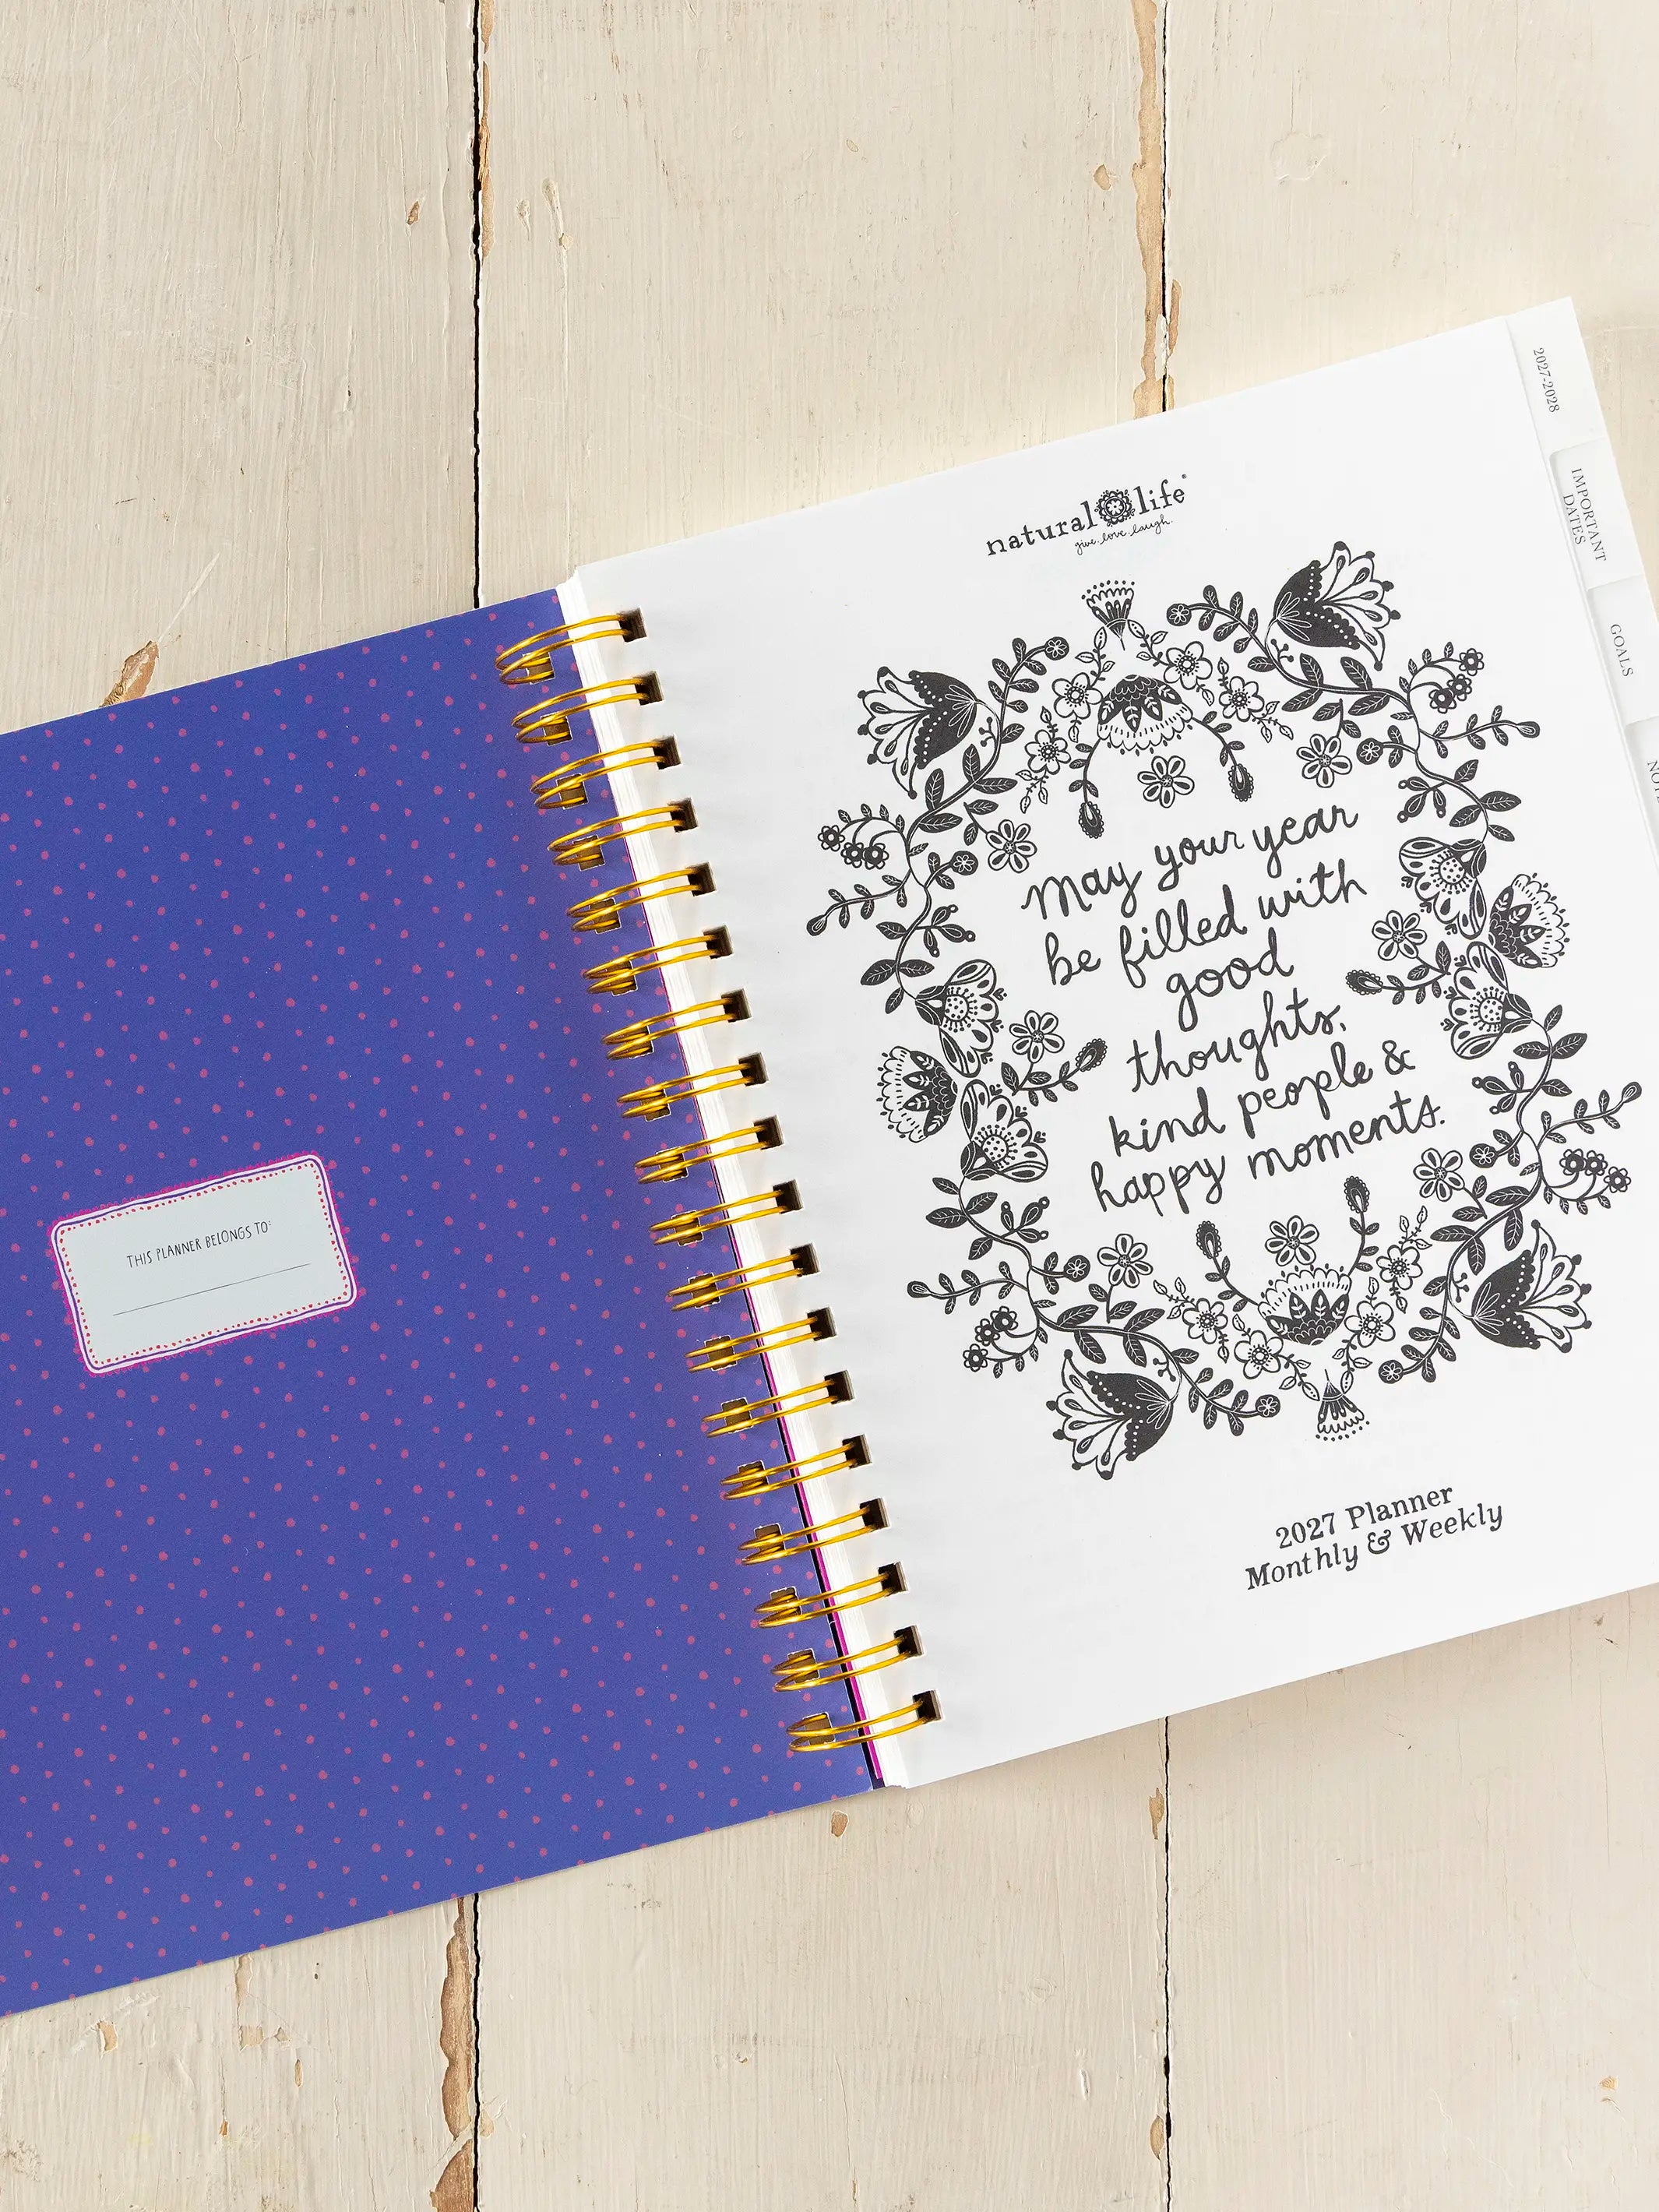 THIS PLANNER BELONGS TO:
natural life
give. love. laugh.
May your year
be filled with
good
thoughts,
kind people &
happy moments.
2027 Planner
Monthly & Weekly
2027-2028
IMPORTANT
DATES
GOALS